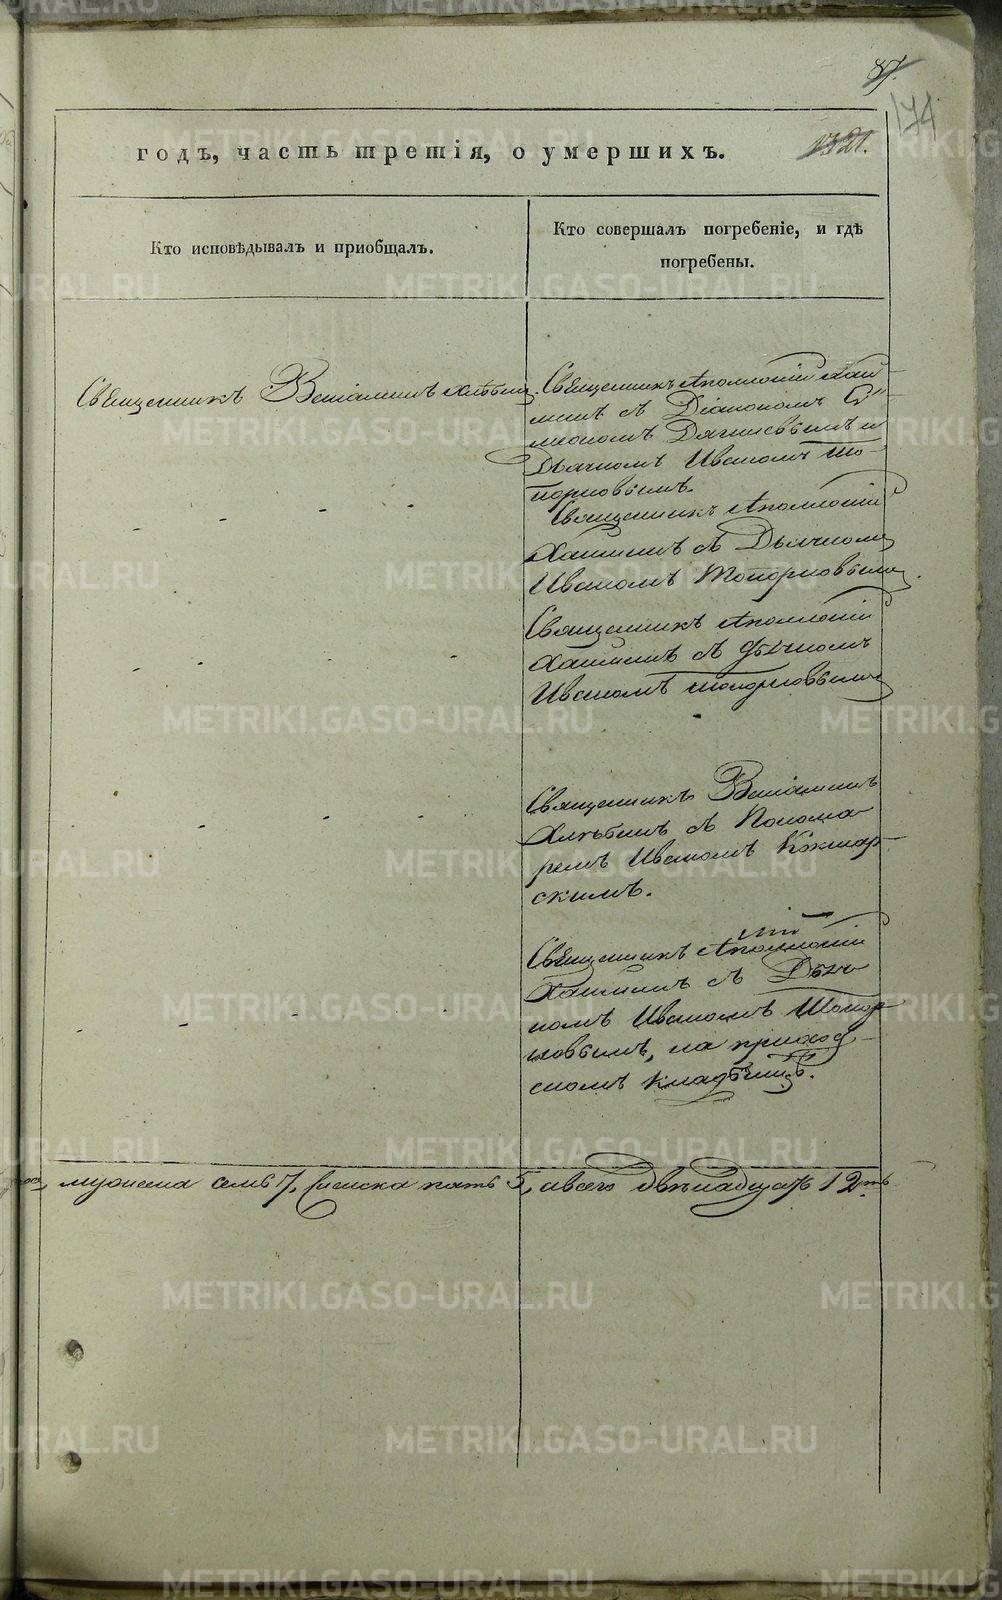 87.
174
1321.
годъ, часть третія, о умершихъ.
Кто исповѣдывалъ и пріобщалъ.
Кто совершалъ погребеніе, и гдѣ
погребены.
Священникъ Веніаминъ Хлѣбинъ.
Священникъ Аполлоній Хан
минъ съ Діакономъ Си
меономъ Дягилевымъ и
Дьячкомъ Иваномъ То-
порковымъ.
Священникъ Аполлоній
Ханминъ съ Дьячкомъ
Иваномъ Топорковымъ.
Священникъ Аполлоній
Ханминъ съ Дьячкомъ
Иваномъ Топорковымъ
Священникъ Веніаминъ
Хлѣбинъ съ Понома
ремъ Иваномъ Кокшар
скимъ.
Священникъ Аполлоній
Ханминъ съ Дьяч
комъ Иваномъ Топор
ковымъ, на приход
скомъ кладбищѣ.
мужеска семь 7, женска пять 5, а всего двѣнадцать 12ть
METRIKI.GASO-URAL.RU